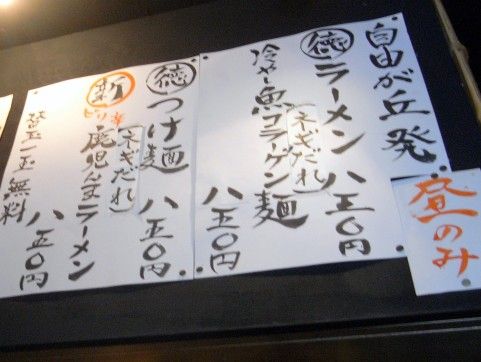 自由が丘発
徳ラーメン 八五〇円
(ネギだれ)
冷や魚コラーゲン麺 八五〇円
徳つけ麺 八五〇円
(ネギだれ)
新ピリ辛
鹿児んまラーメン 八五〇円
替玉一玉無料
昼のみ